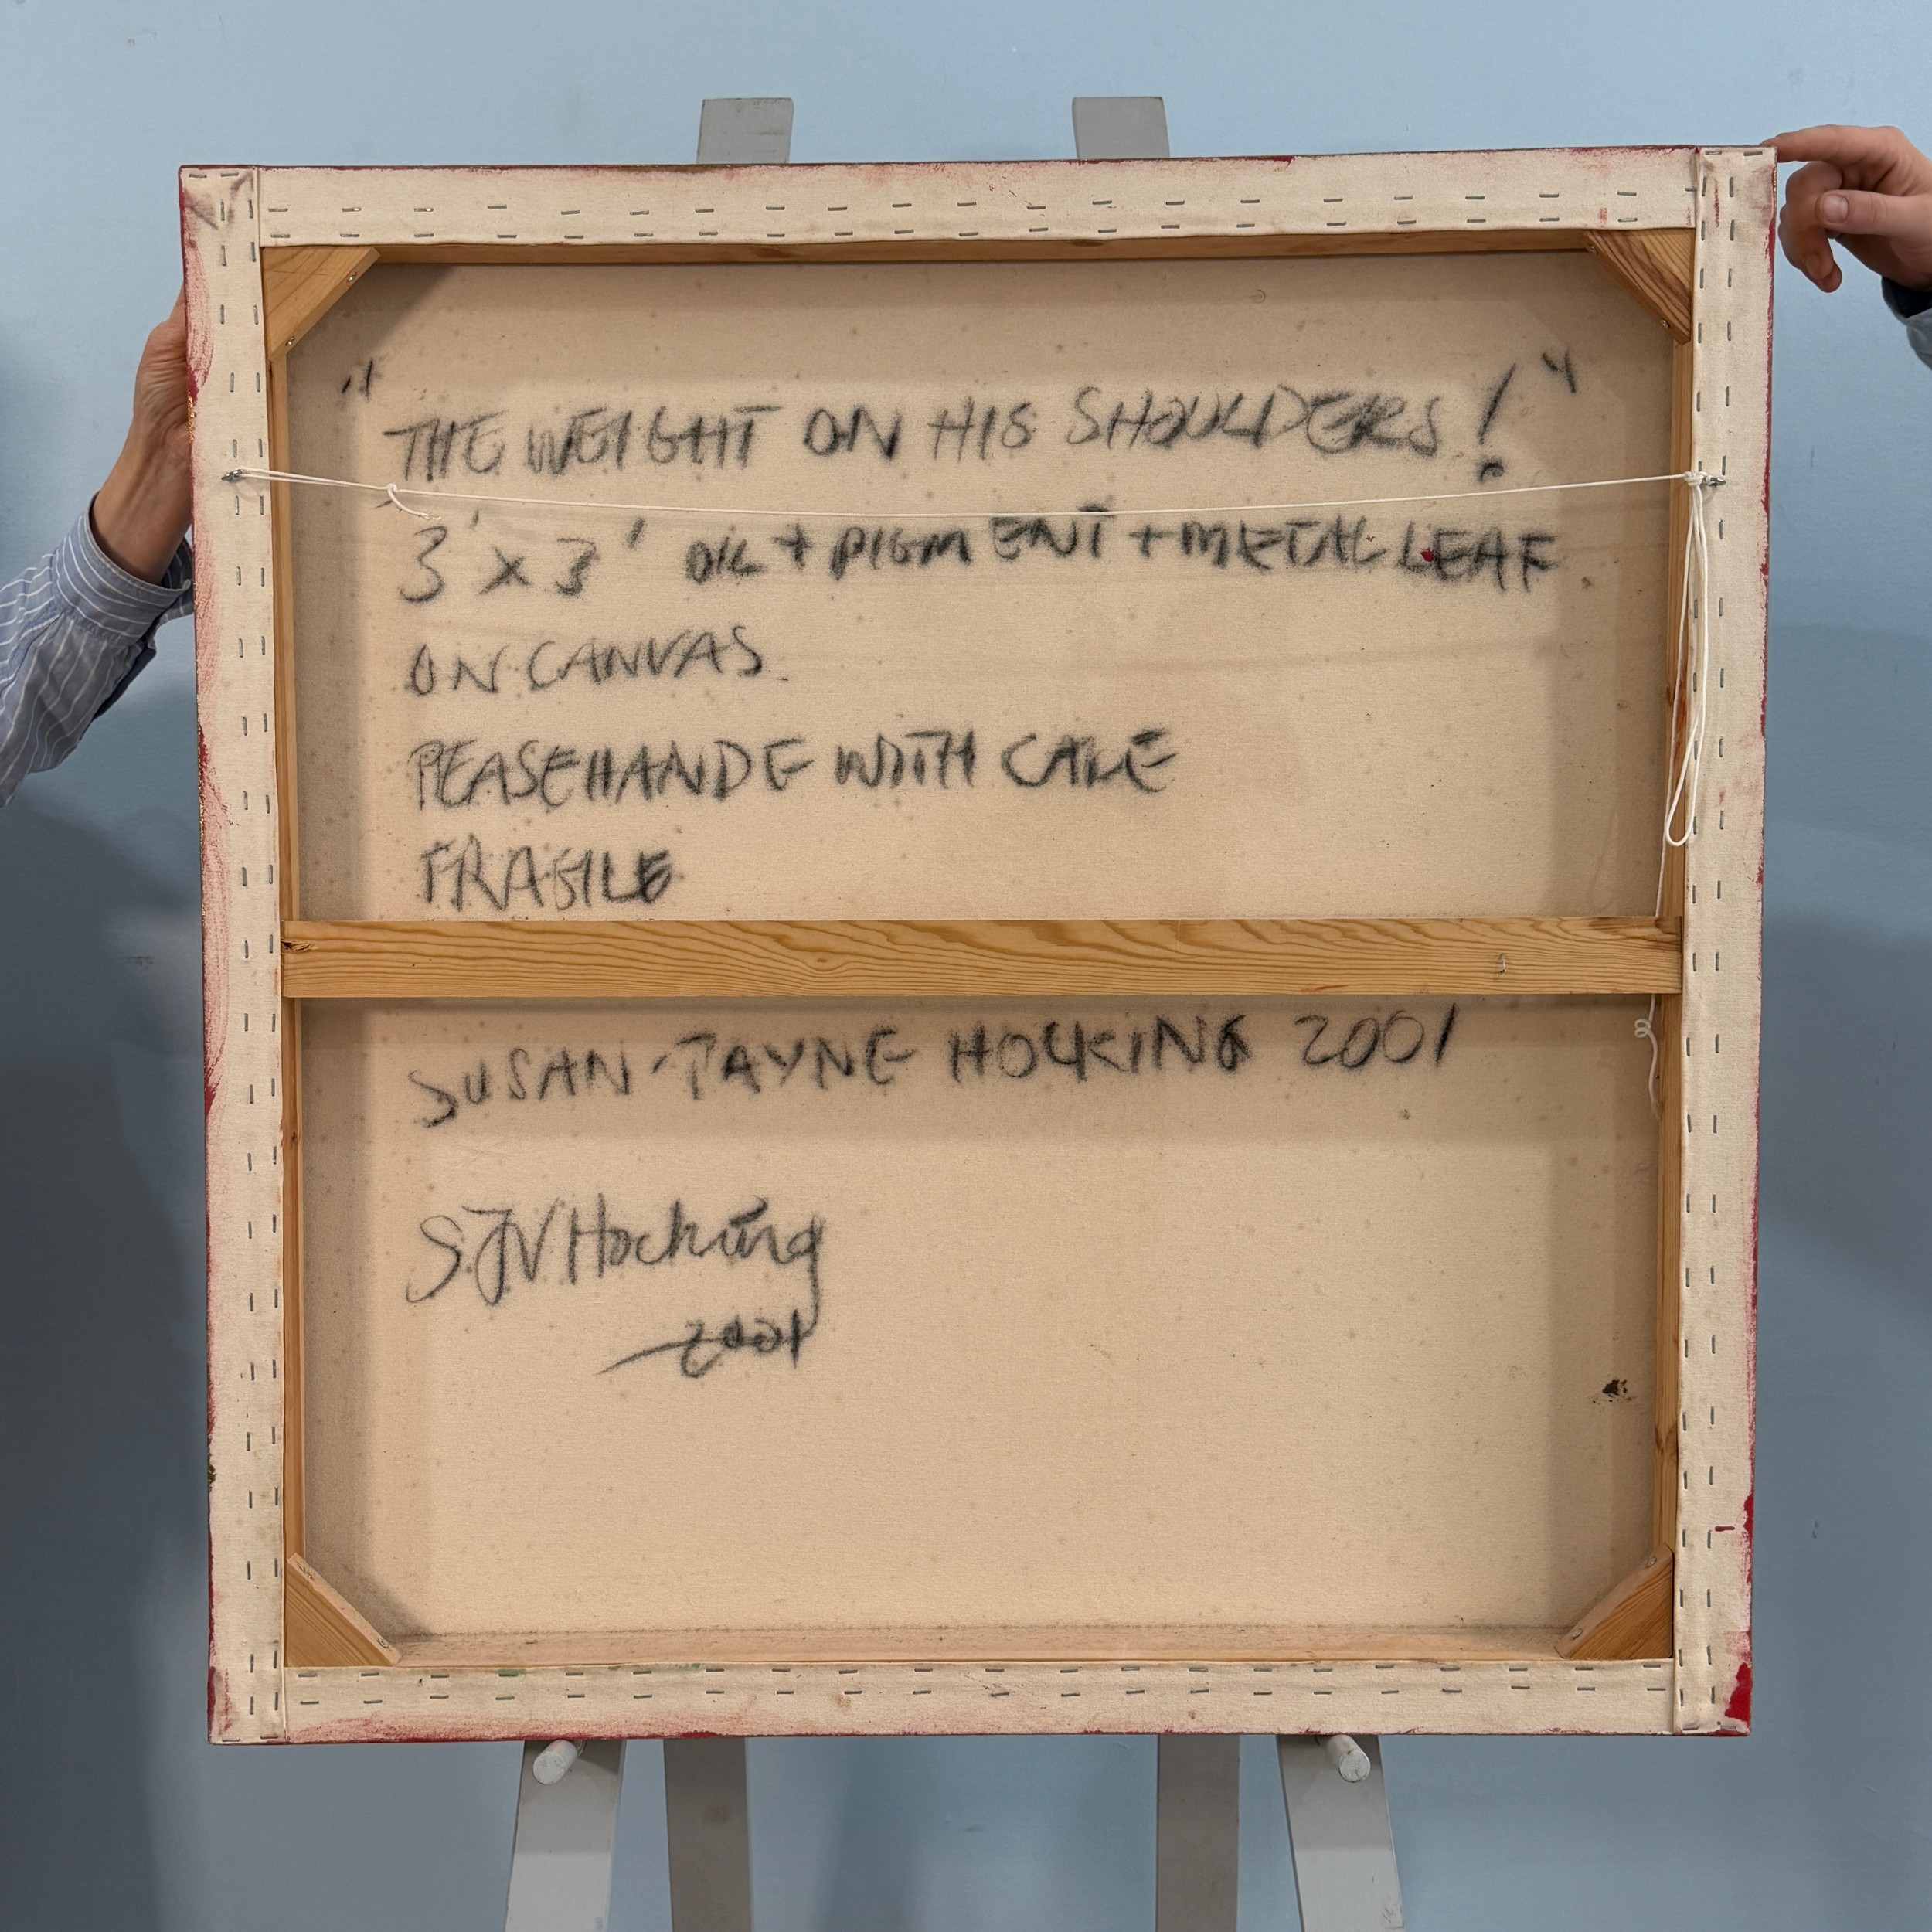 "THE WEIGHT ON HIS SHOULDERS!"
3' x 3' OIL + PIGMENT + METAL LEAF
ON CANVAS
PEASE HANDE WITH CARE
FRAGILE
SUSAN-JAYNE HOCKING 2001
SJV Hocking
2001